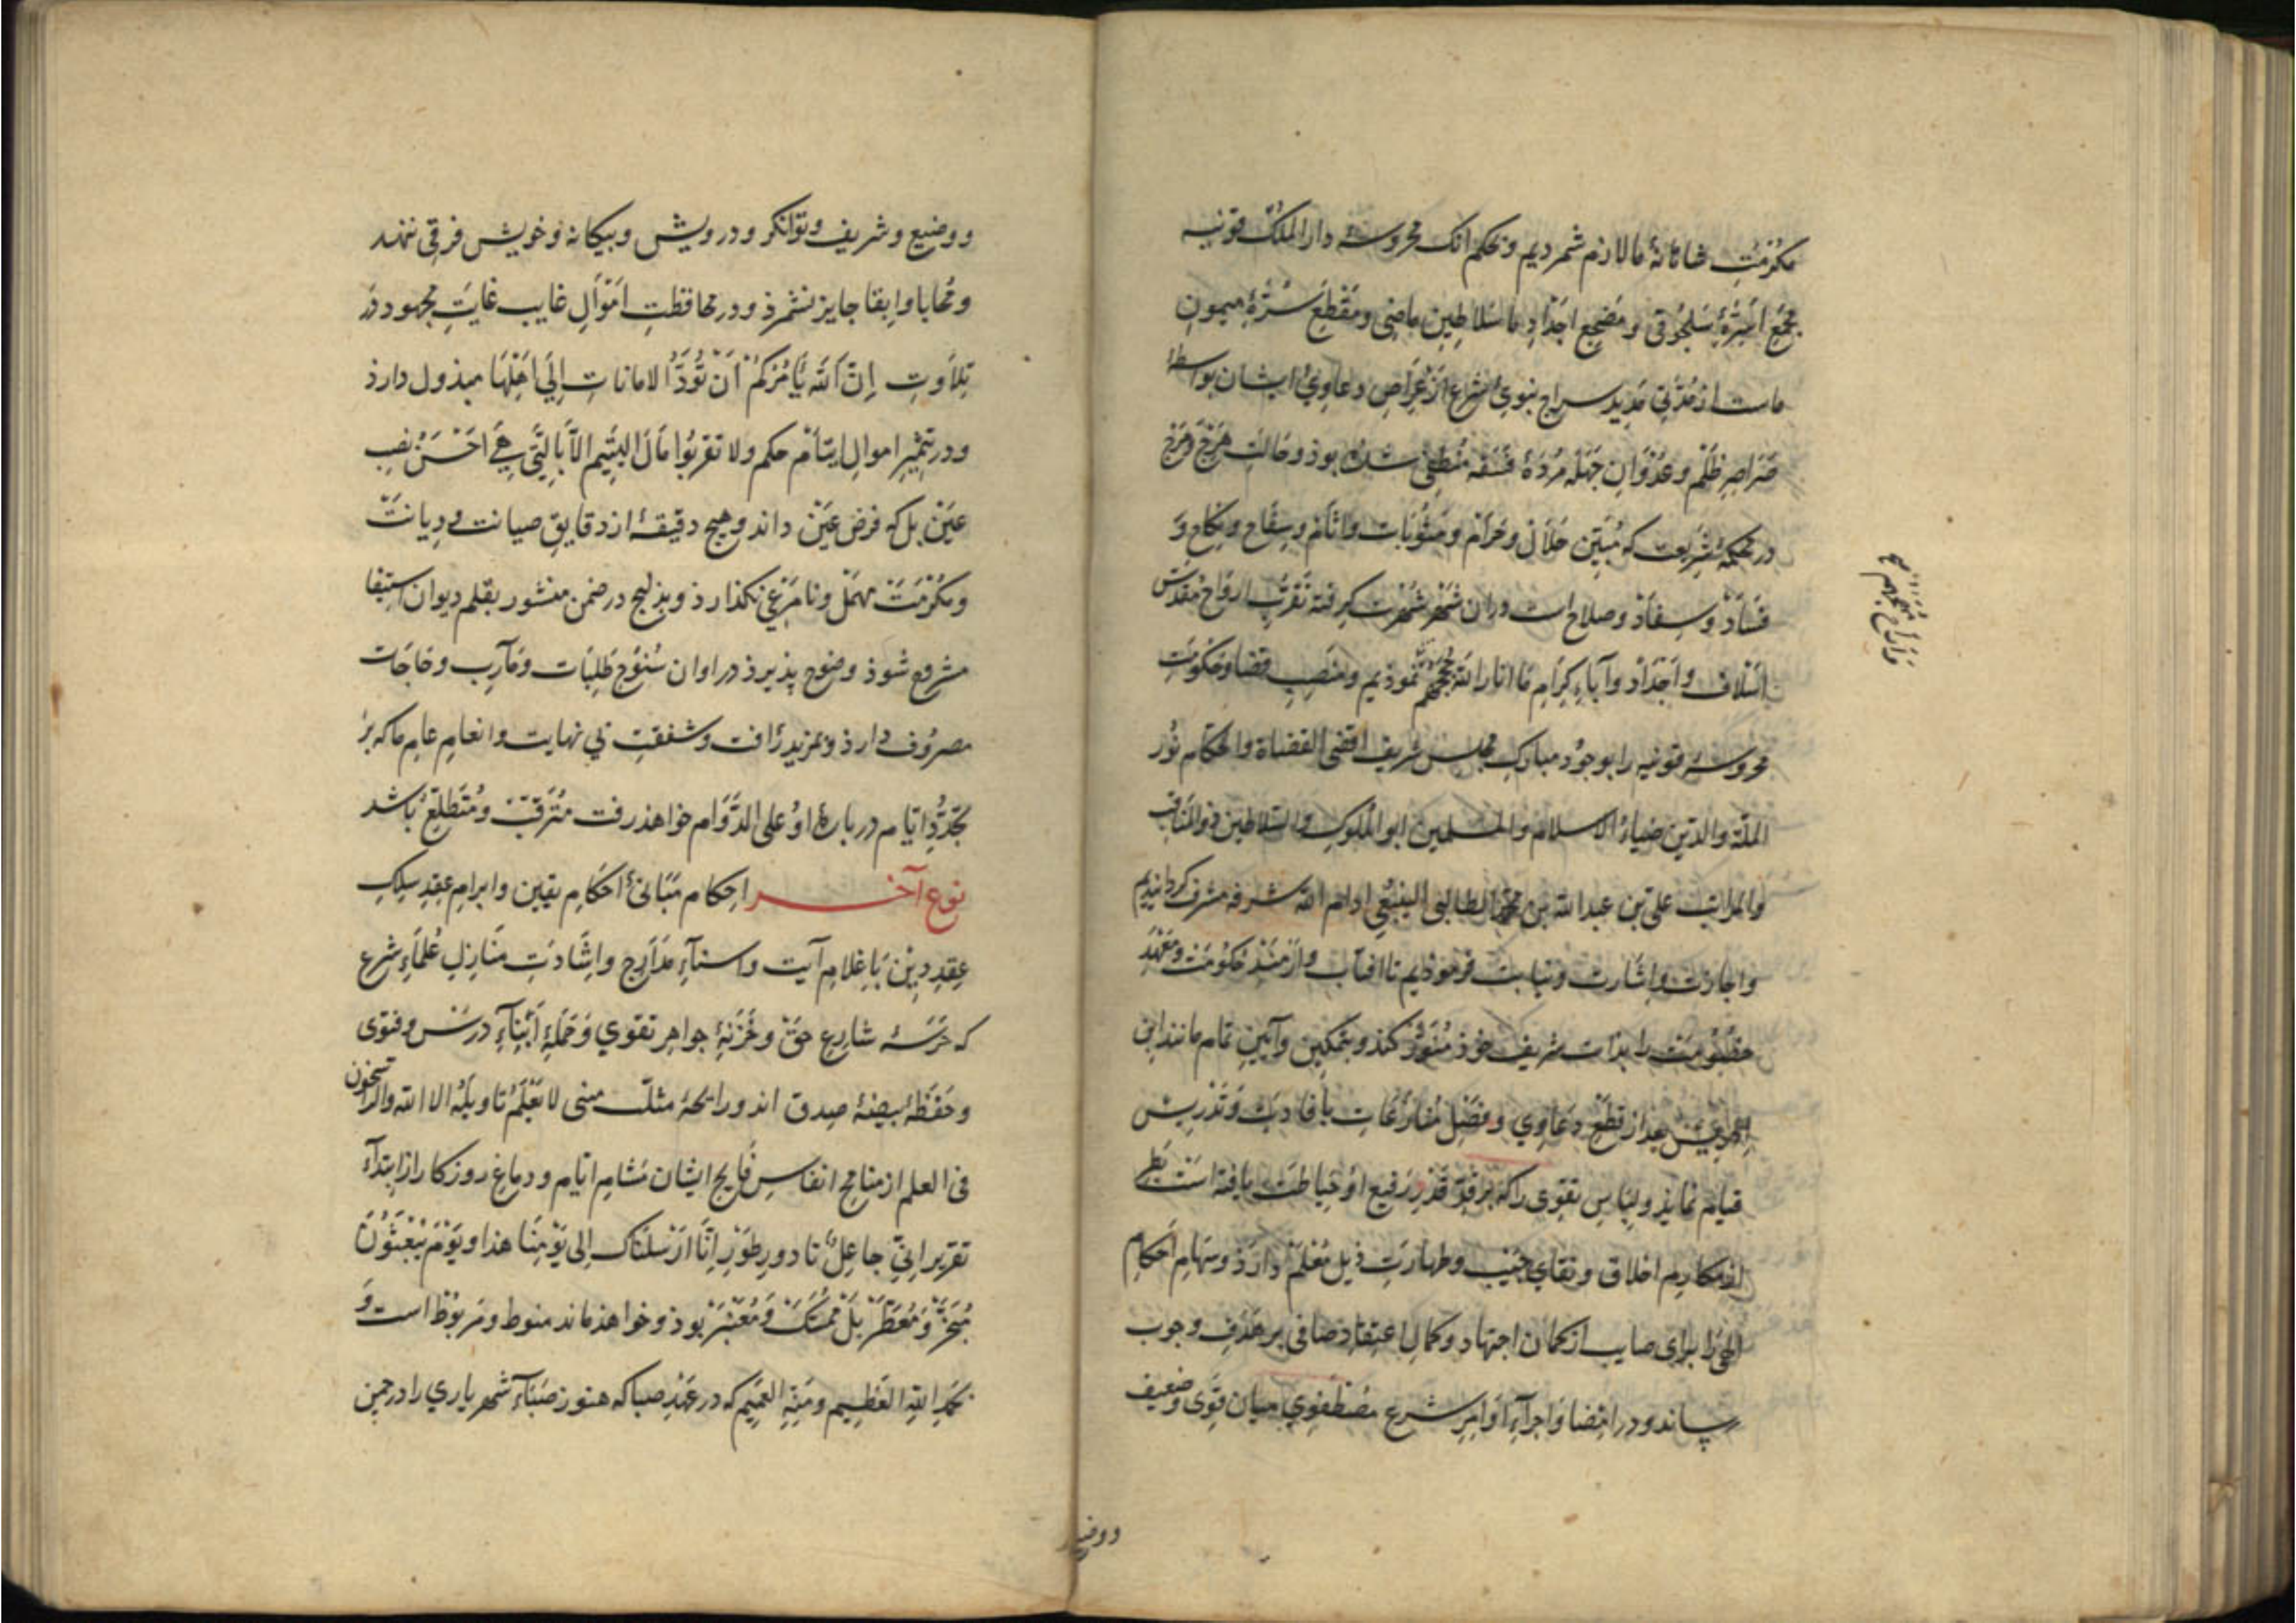 مکرمت شاهانهٔ ما لازم شمردیم و بحکم انک محروسهٔ دار الملک قونیه
مجمع اسرّهٔ سلجوقی و مضجع اجداد ما سلاطین ماضی و مقطع سرّهٔ میمون
ماست از مدتی مدید سراج نبوی شرع از اعراض دعاوی ایشان بواسطهٔ
صراصر ظلم و عدوان جهلهٔ مردهٔ فسقه منطفی شده بوذ و حالت هرج و مرج
در محکمهٔ شریعت که مبیّن حلال و حرام و مثوبات و اثام و سفاح و نکاح و
فساد و سفاد و صلاح است دران شهر شهرت گرفته تقرّب ارواح مقدّس
اسلاف و اجداد و آباء کرام ما انار الله نموذیم و منصب قضا و حکومت
محروسهٔ قونیه را بوجود مبارک مجلس شریف اقضی القضاة و الحکام نور
الملّة والدّین ضیاء الاسلام والمسلمین ابو الملوک والسّلاطین ذو المناقب
والمراتب علی بن عبد الله بن محمد الطالبی الینبعی ادام الله شرفه مشرف کردانیدیم
و اجازت و اشارت و نیابت فرموذیم تا افتاب وار مسند حکومت و مهد
خصومت را بذات شریف خوذ منوّر کند و بتمکین و آیین تمام مانند ابن
ادریس بعد از قطع دعاوی و فصل منازعات بافادت و تدریس
قیام نمایذ و لباس تقوی را که بر قدّ قدر رفیع او خیاطت یافته است بطراز
از مکارم اخلاق و نقای جیب و طهارت ذیل معلم دارذ و سهام احکام
الهی را برای صایب از کمان اجتهاد و کمال اعتقاد صافی بر هدف وجوب
رساند و در امضا و اجرآء اوامر شرع مصطفوی میان قوی و ضعیف
ووضیع
و وضیع و شریف و توانکر و درویش و بیکانه و خویش فرقی ننهد
و محابا و ابقا جایز نشمرذ و در محافظت اموال غایب غایت مجهود در
تلاوت انّ الله یأمرکم ان تؤدّا الامانات الی اهلها مبذول دارذ
و در تثمیر اموال ایتام حکم ولا تقربوا مال الیتیم الا بالتی هی احسن نصب
عین بل که فرض عین داند و هیچ دقیقهٔ از دقایق صیانت و دیانت
و مکرمت مهمل و نامرعی نکذارذ و بذلیج در ضمن منشور بقلم دیوان استیفا
مشروع شوذ وضوح پذیرذ در اوان سنوح طلبات و مآرب و حاجات
مصروف دارذ و بمزید رأفت و شفقت بی نهایت و انعام عام ما که بر
تجدّد ایّام در بارهٔ او علی الدّوام خواهذ رفت مترقّب و متطلّع باشد
نوع آخر احکام مبانی احکام یقین و ابرام عقد سلک
عقد دین باعلام آیت و اسنآء مدارج و اشادت منازل علماء شرع
که حرسهٔ شارع حق و خزنهٔ جواهر تقوی و حملهٔ أبنآء درس و فتوی
و حفظهٔ بیضهٔ صدق اند و رایحهٔ مثلّث معنی لا یعلم تاویله الا الله والراسخون
فی العلم از منافح انفاس فایح ایشان مشام ایام و دماغ روزکار از ابتدآء
تقریر انّی جاعل تا دور طور انّا ارسلناک الی یومنا هذا و یوم یبعثون
مبخّر و معطّر بل ممسّک و معنبر بوذ و خواهذ ماند منوط و مربوط است و
بحمد الله العظیم و منّه العمیم که در عهد صبا که هنوز صباء شهریاری را در چمن